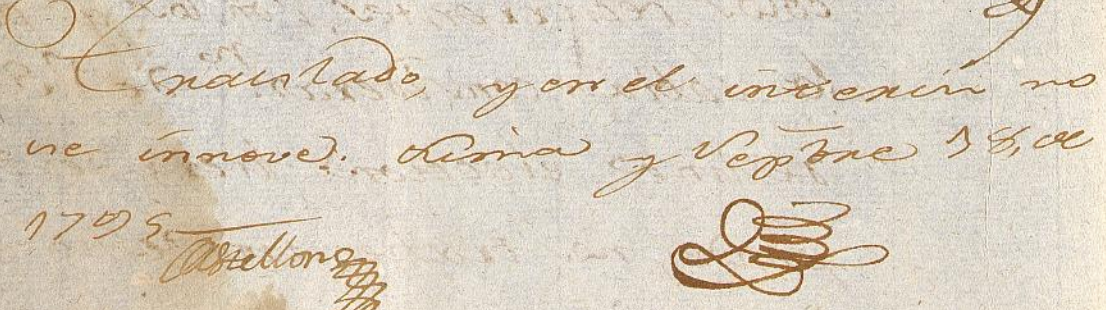 Traslado, y en el interin no
se innove. Lima y Sepbre 18, de
1795
Castellon